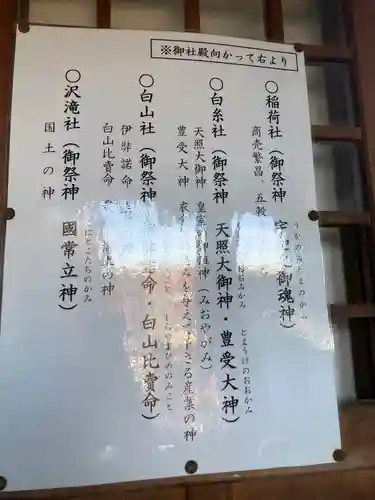 ※御社殿向かって右より
○稲荷社（御祭神 宇 御魂神）
うかのみたまのかみ
商売繁昌、五穀
○白糸社（御祭神 天照大御神・豊受大神）
おおみかみ とようけのおおかみ
天照大御神 皇室 御祖神（みおやがみ）
豊受大神 衣食 る産業の神
○白山社（御祭神 命・白山比賣命）
しらやまひめのみこと
伊弉諾命
白山比賣命 の神
○沢滝社（御祭神 國常立神）
くにとこたちのかみ
国土の神